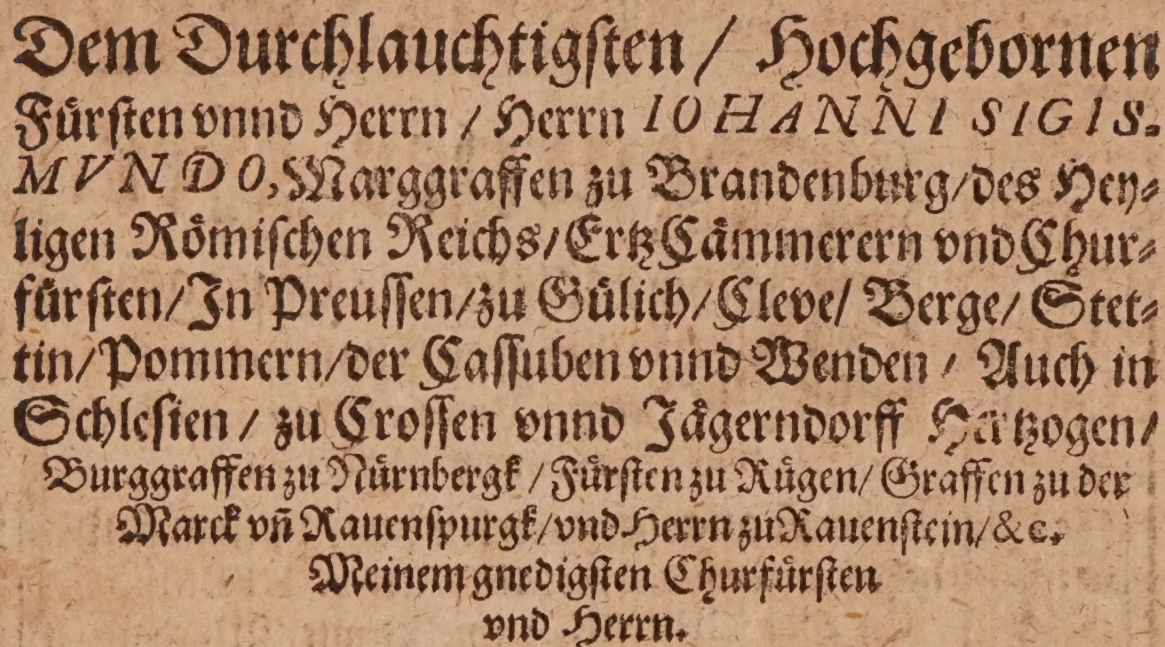 Dem Durchlauchtigsten / Hochgebornen
Fürsten vnnd Herrn / Herrn IOHANNI SIGIS-
MVNDO, Marggraffen zu Brandenburg/des Hey-
ligen Römischen Reichs/ErtzCämmerern vnd Chur-
fürsten/In Preussen/zu Gülich/Cleve/ Berge/ Stet-
tin/Pommern/der Cassuben vnnd Wenden / Auch in
Schlesien / zu Crossen vnnd Jägerndorff Hertzogen/
Burggraffen zu Nürnbergk / Fürsten zu Rügen/ Graffen zu der
Marck vñ Rauenspurgk/vnd Herrn zu Rauenstein/&c.
Meinem gnedigsten Churfürsten
vnd Herrn.